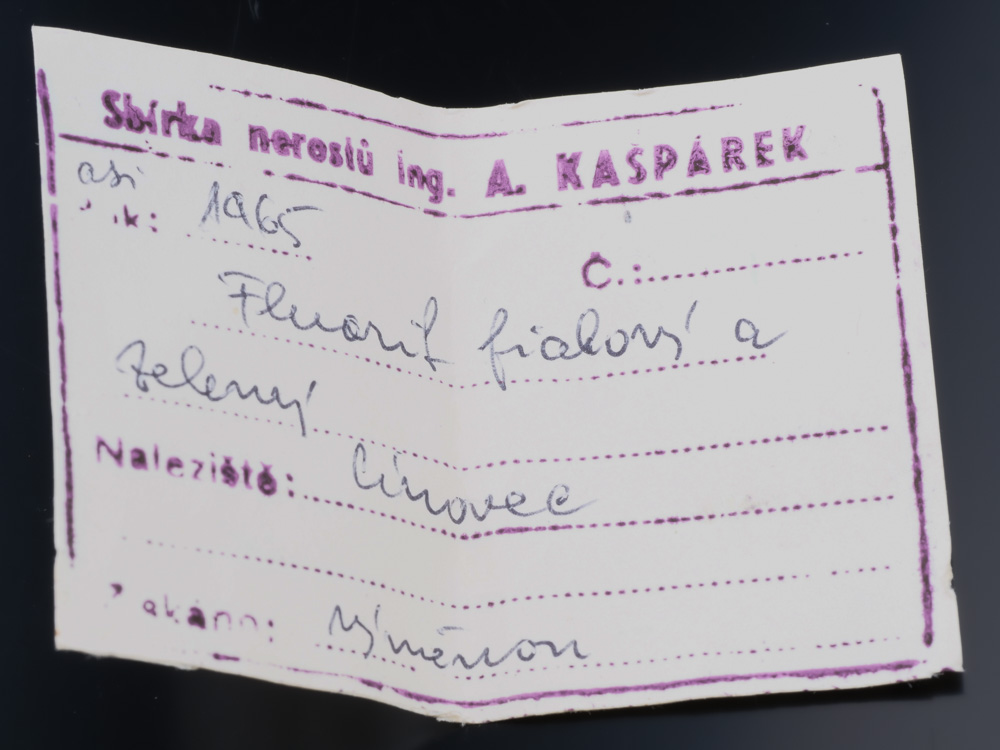 Sbírka nerostů ing. A. KAŠPÁREK
asi
Rok: 1965
Č.:
Fluorit fialový a
zelený
Naleziště: Cínovec
Získáno: výměnou